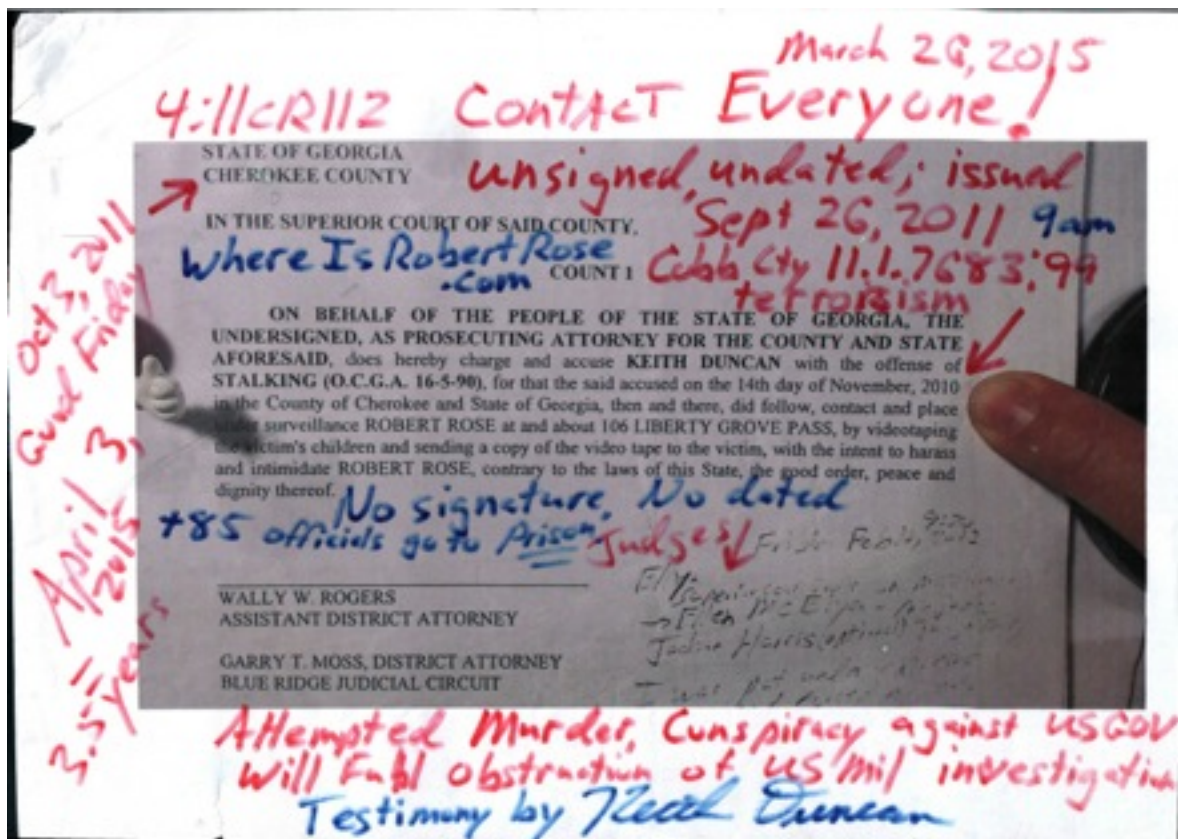 March 26, 2015
4:11cR112 Contact Everyone!
STATE OF GEORGIA
CHEROKEE COUNTY
unsigned, undated; issued
Sept 26, 2011 9am
IN THE SUPERIOR COURT OF SAID COUNTY.
Where Is Robert Rose
.com
COUNT 1
Cobb Cty 11.1.7683;99
terrorsism
ON BEHALF OF THE PEOPLE OF THE STATE OF GEORGIA, THE
UNDERSIGNED, AS PROSECUTING ATTORNEY FOR THE COUNTY AND STATE
AFORESAID, does hereby charge and accuse KEITH DUNCAN with the offense of
STALKING (O.C.G.A. 16-5-90), for that the said accused on the 14th day of November, 2010
in the County of Cherokee and State of Georgia, then and there, did follow, contact and place
under surveillance ROBERT ROSE at and about 106 LIBERTY GROVE PASS, by videotaping
the victim's children and sending a copy of the video tape to the victim, with the intent to harass
and intimidate ROBERT ROSE, contrary to the laws of this State, the good order, peace and
dignity thereof.
No signature, No dated
+85 officials go to Prison
Judges
Friday Feb
WALLY W. ROGERS
ASSISTANT DISTRICT ATTORNEY
Ellen Mc
Harris
GARRY T. MOSS, DISTRICT ATTORNEY
BLUE RIDGE JUDICIAL CIRCUIT
I was
Oct 3, 2011
Good Friday
April 3,
2015
=
3.5 years
Attempted Murder, Cunspiracy against US GOV
Will Full obstruction of US Mil investigation
Testimony by Keith Duncan